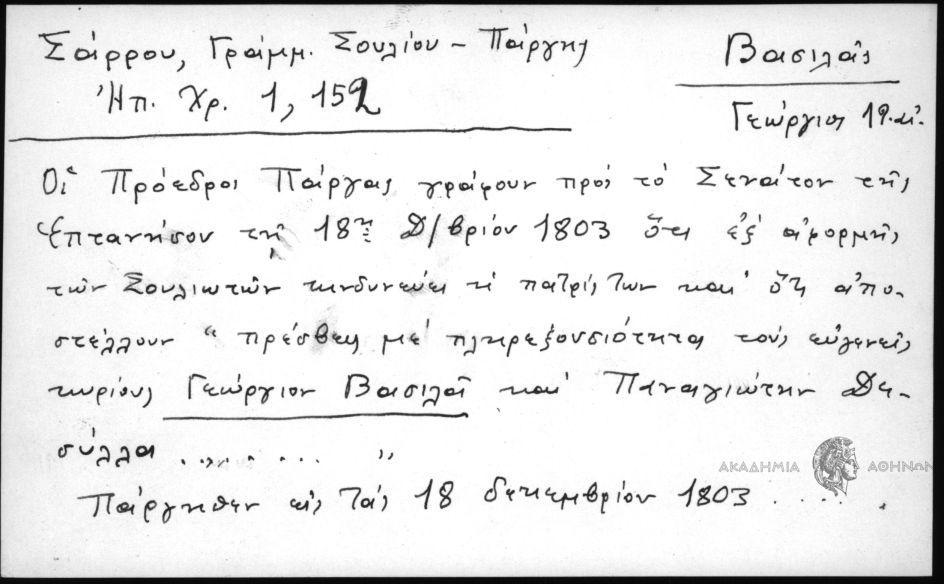 Σάρρου, Γράμμ. Σουλίου - Πάργης
Ἠπ. Χρ. 1, 152
Βασιλᾶς
Γεώργιος 19. αἰ.
Οἱ Πρόεδροι Πάργας γράφουν πρὸς τὸ Σενάτον τῆς
Ἑπτανήσου τῇ 18ῃ Δ/βρίου 1803 ὅτι ἐξ ἀφορμῆς
τῶν Σουλιωτῶν κινδυνεύει ἡ πατρίς των καὶ ὅτι ἀπο-
στέλλουν " πρέσβεις μὲ πληρεξουσιότητα τοὺς εὐγενεῖς
κυρίους Γεώργιον Βασιλᾶ καὶ Παναγιώτην Δε-
σύλλα ........ "
Πάργηθεν εἰς τὰς 18 δεκεμβρίου 1803 .....
ΑΚΑΔΗΜΙΑ ΑΘΗΝΩΝ